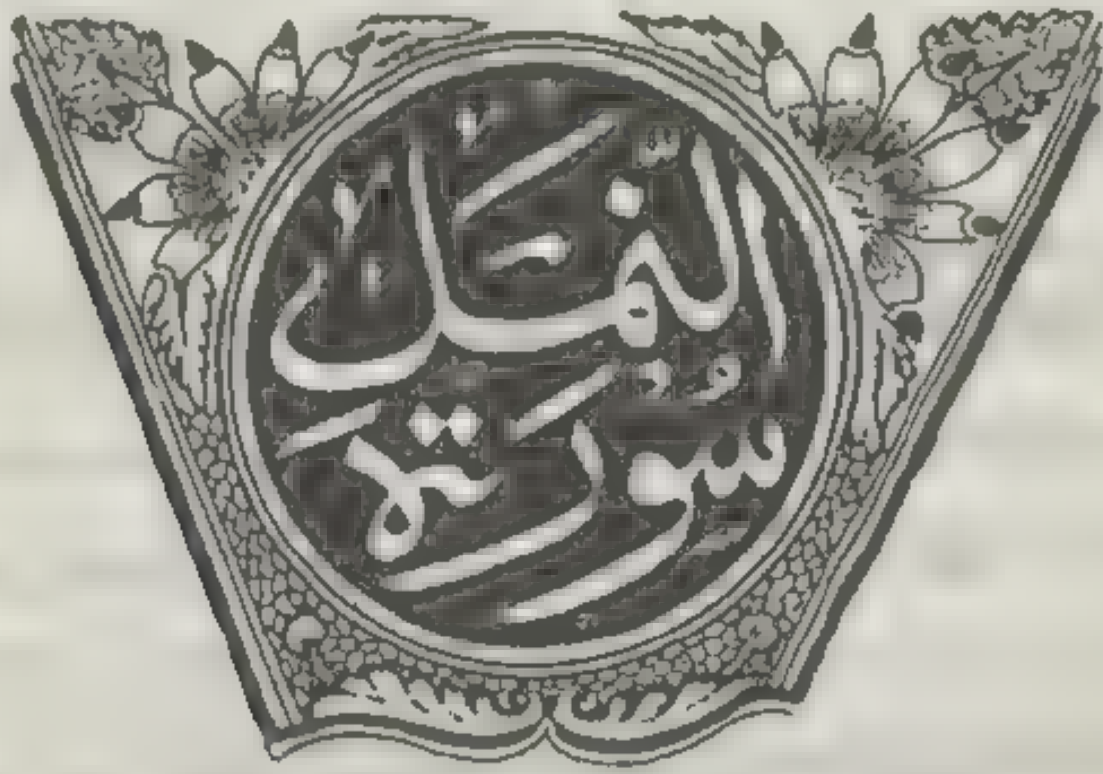 سورة
النمل